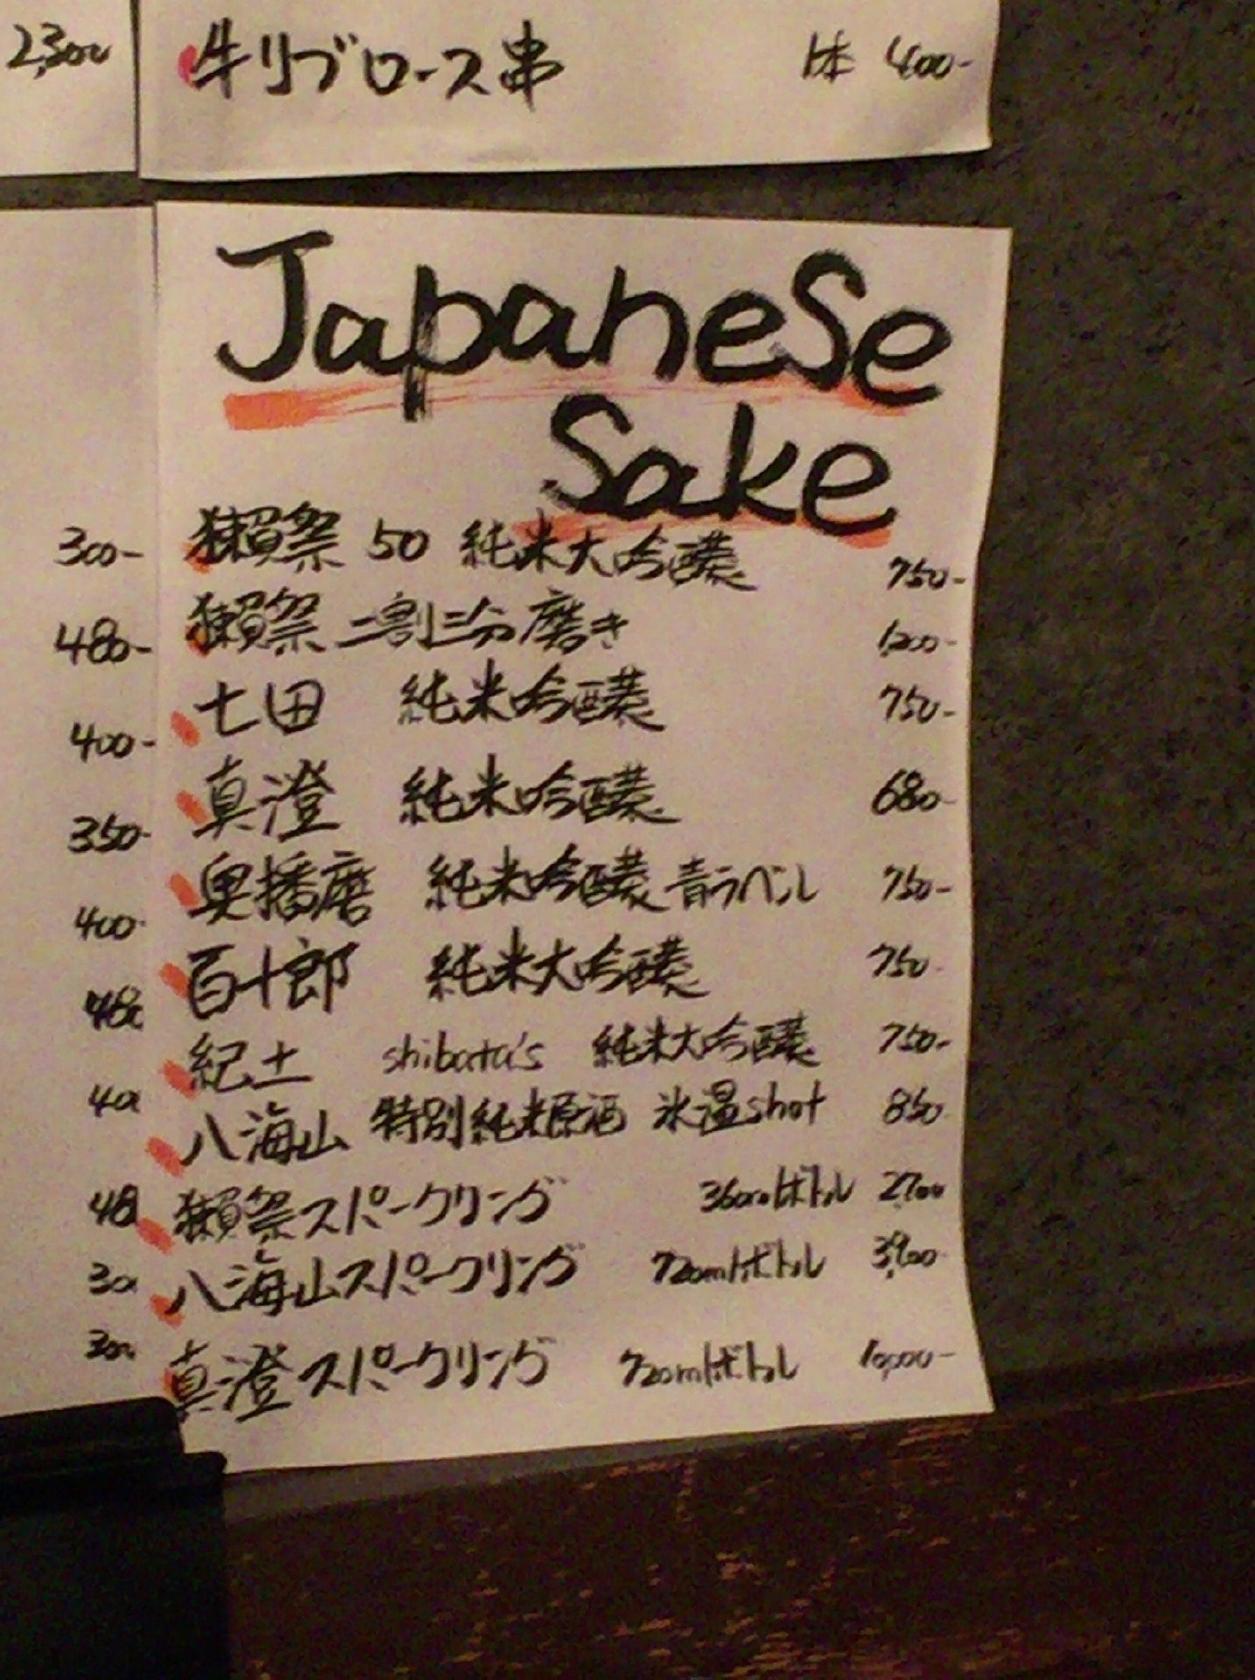 2,300
牛リブロース串 1本 400-
Japanese
Sake
獺祭 50 純米大吟醸 750-
獺祭 二割三分 磨き 1,200-
七田 純米吟醸 750-
真澄 純米吟醸 680-
奥播磨 純米吟醸 青ラベル 750-
百十郎 純米大吟醸 750-
紀土 shibata's 純米大吟醸 750-
八海山 特別純米原酒 氷温shot 850-
獺祭スパークリング 360mlボトル 2,700
八海山スパークリング 720mlボトル 3,900-
真澄スパークリング 720mlボトル 10,000-
300-
480-
400-
350-
400-
480
400
480
300
300